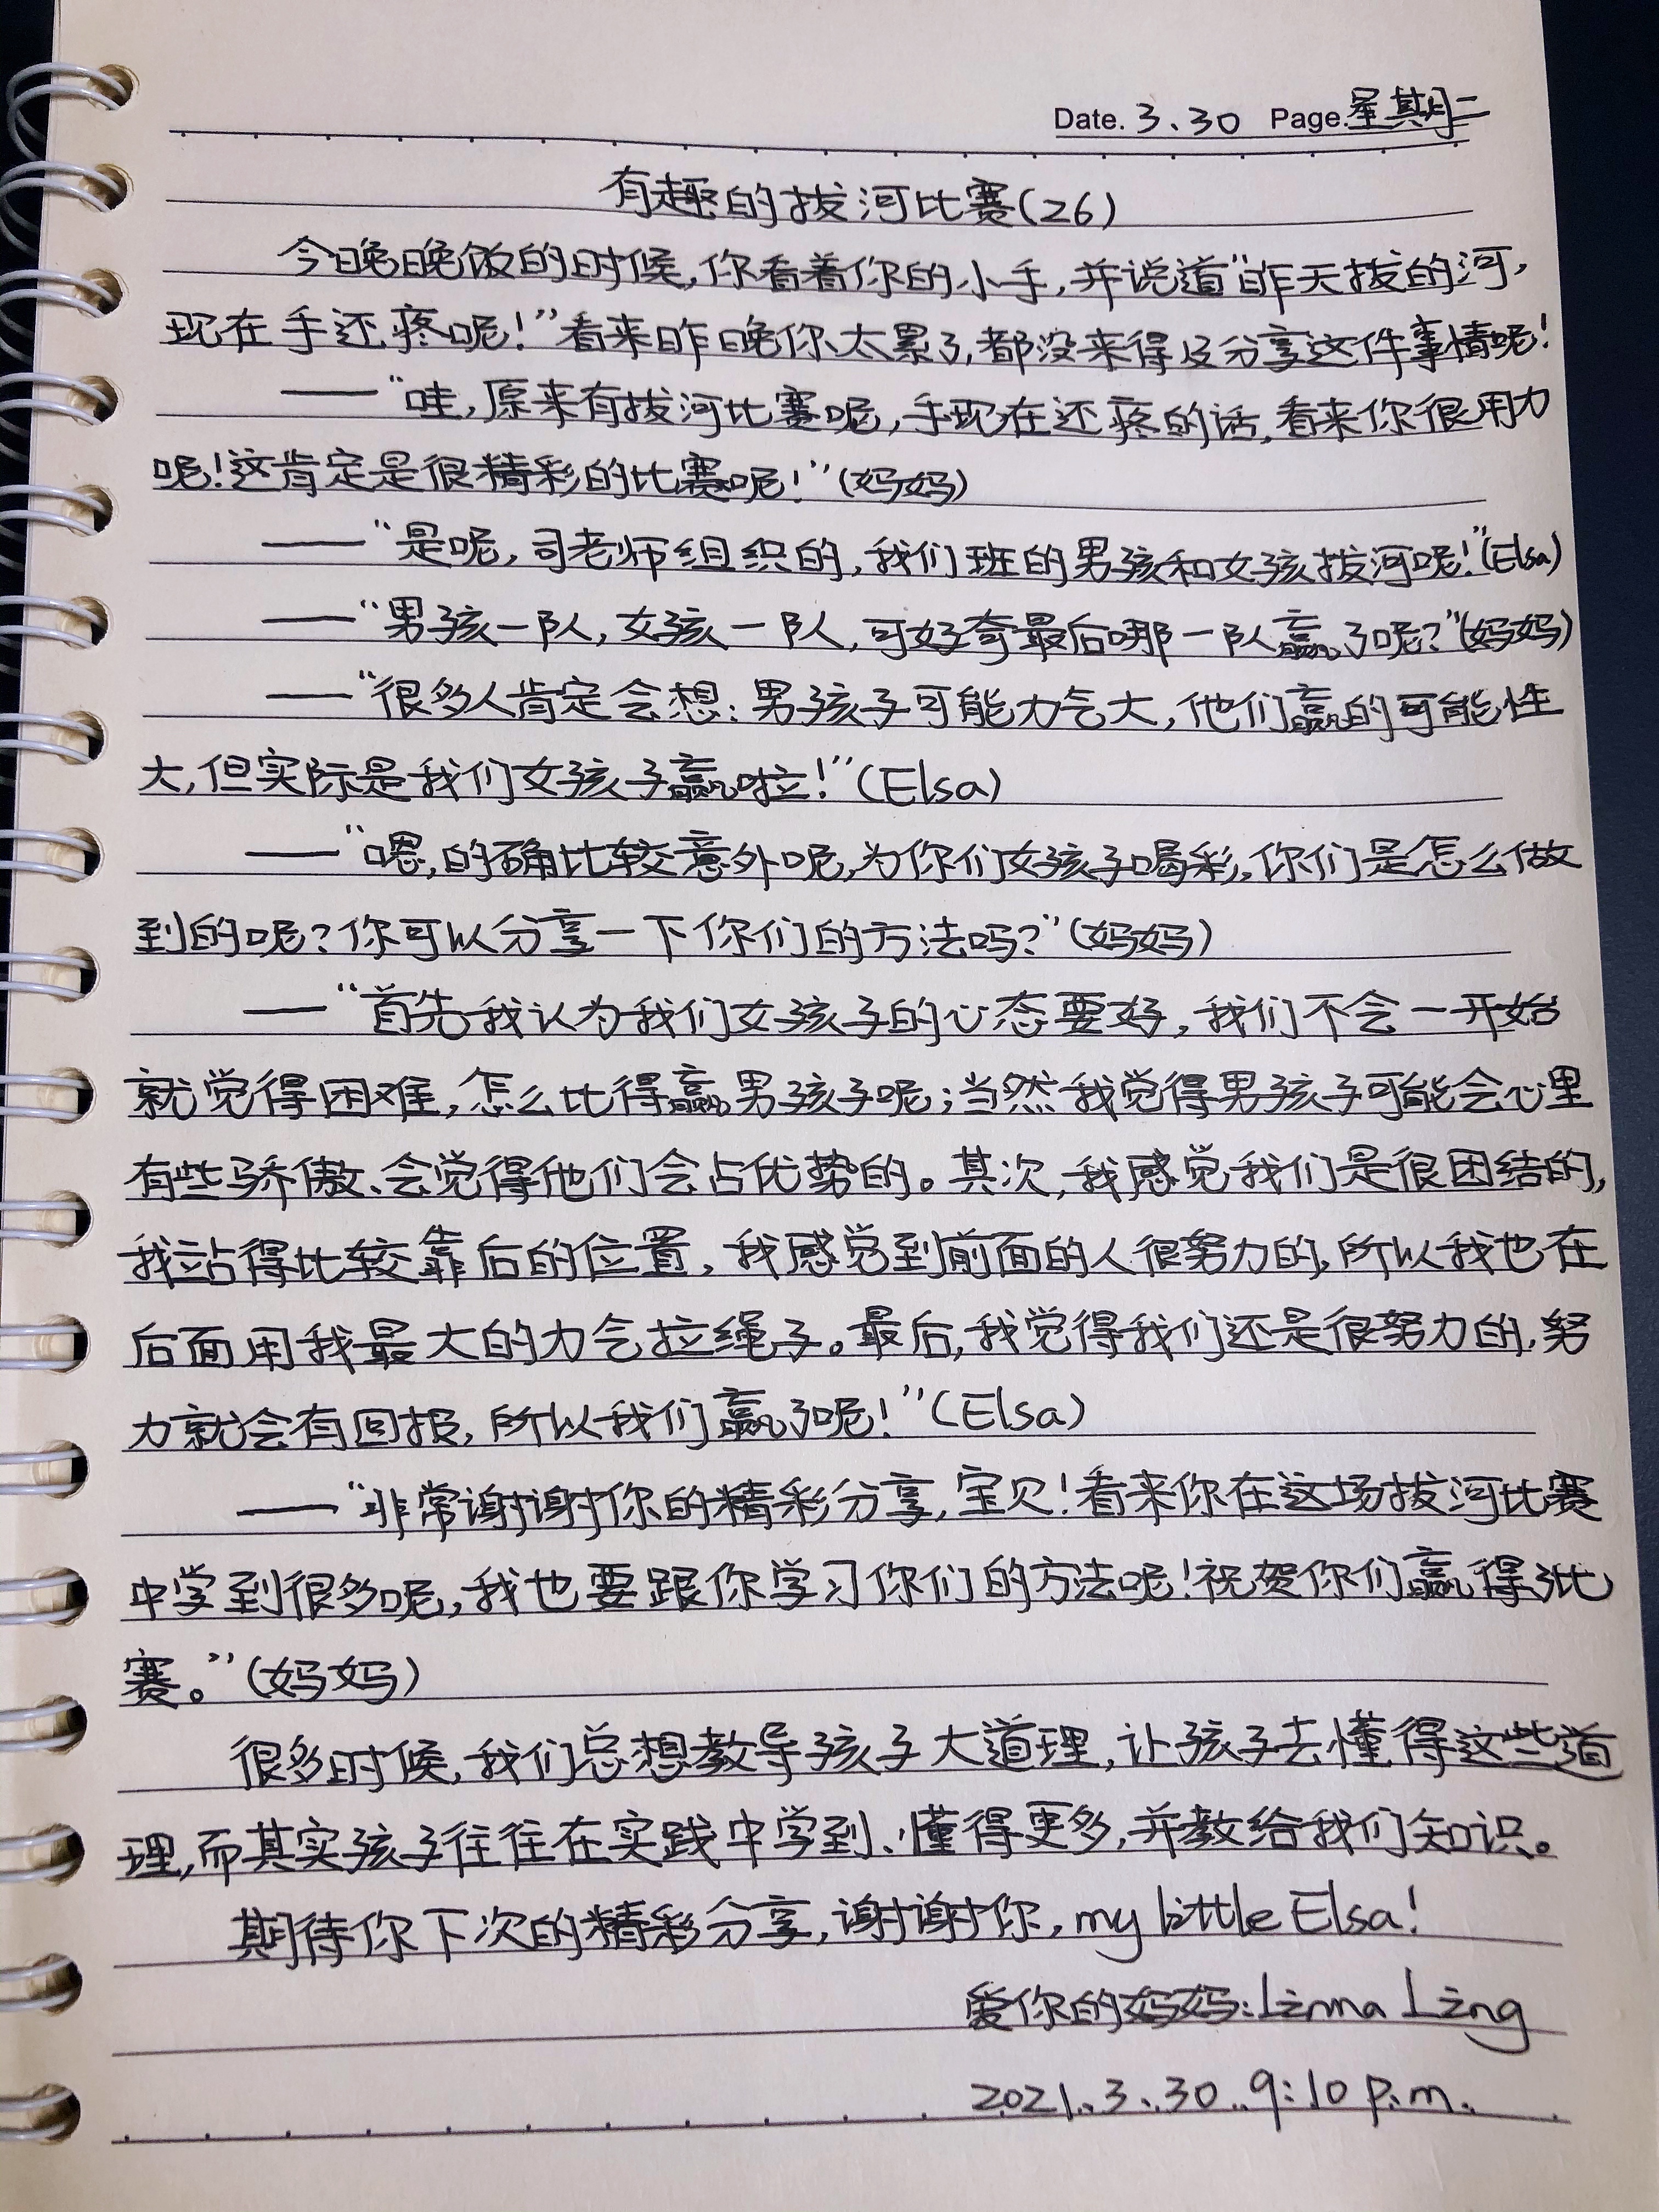 Date. 3.30 Page. 星期二
有趣的拔河比赛(26)
今晚晚饭的时候,你看着你的小手,并说道“昨天拔的河,
现在手还疼呢!”看来昨晚你太累了,都没来得及分享这件事情呢!
——“哇,原来有拔河比赛呢,手现在还疼的话,看来你很用力
呢!这肯定是很精彩的比赛呢!”(妈妈)
——“是呢,司老师组织的,我们班的男孩和女孩拔河呢!”(Elsa)
——“男孩一队,女孩一队,可好奇最后哪一队赢了呢?”(妈妈)
——“很多人肯定会想:男孩子可能力气大,他们赢的可能性
大,但实际是我们女孩子赢啦!”(Elsa)
——“嗯,的确比较意外呢,为你们女孩子喝彩,你们是怎么做
到的呢?你可以分享一下你们的方法吗?”(妈妈)
——“首先我认为我们女孩子的心态要好,我们不会一开始
就觉得困难,怎么比得赢男孩子呢;当然我觉得男孩子可能会心里
有些骄傲、会觉得他们会占优势的。其次,我感觉我们是很团结的,
我站得比较靠后的位置,我感觉到前面的人很努力的,所以我也在
后面用我最大的力气拉绳子。最后,我觉得我们还是很努力的,努
力就会有回报,所以我们赢了呢!”(Elsa)
——“非常谢谢你的精彩分享,宝贝!看来你在这场拔河比赛
中学到很多呢,我也要跟你学习你们的方法呢!祝贺你们赢得比
赛。”(妈妈)
很多时候,我们总想教导孩子大道理,让孩子去懂得这些道
理,而其实孩子往往在实践中学到、懂得更多,并教给我们知识。
期待你下次的精彩分享,谢谢你,my little Elsa!
爱你的妈妈:Linna Ling
2021.3.30 9:10 p.m.